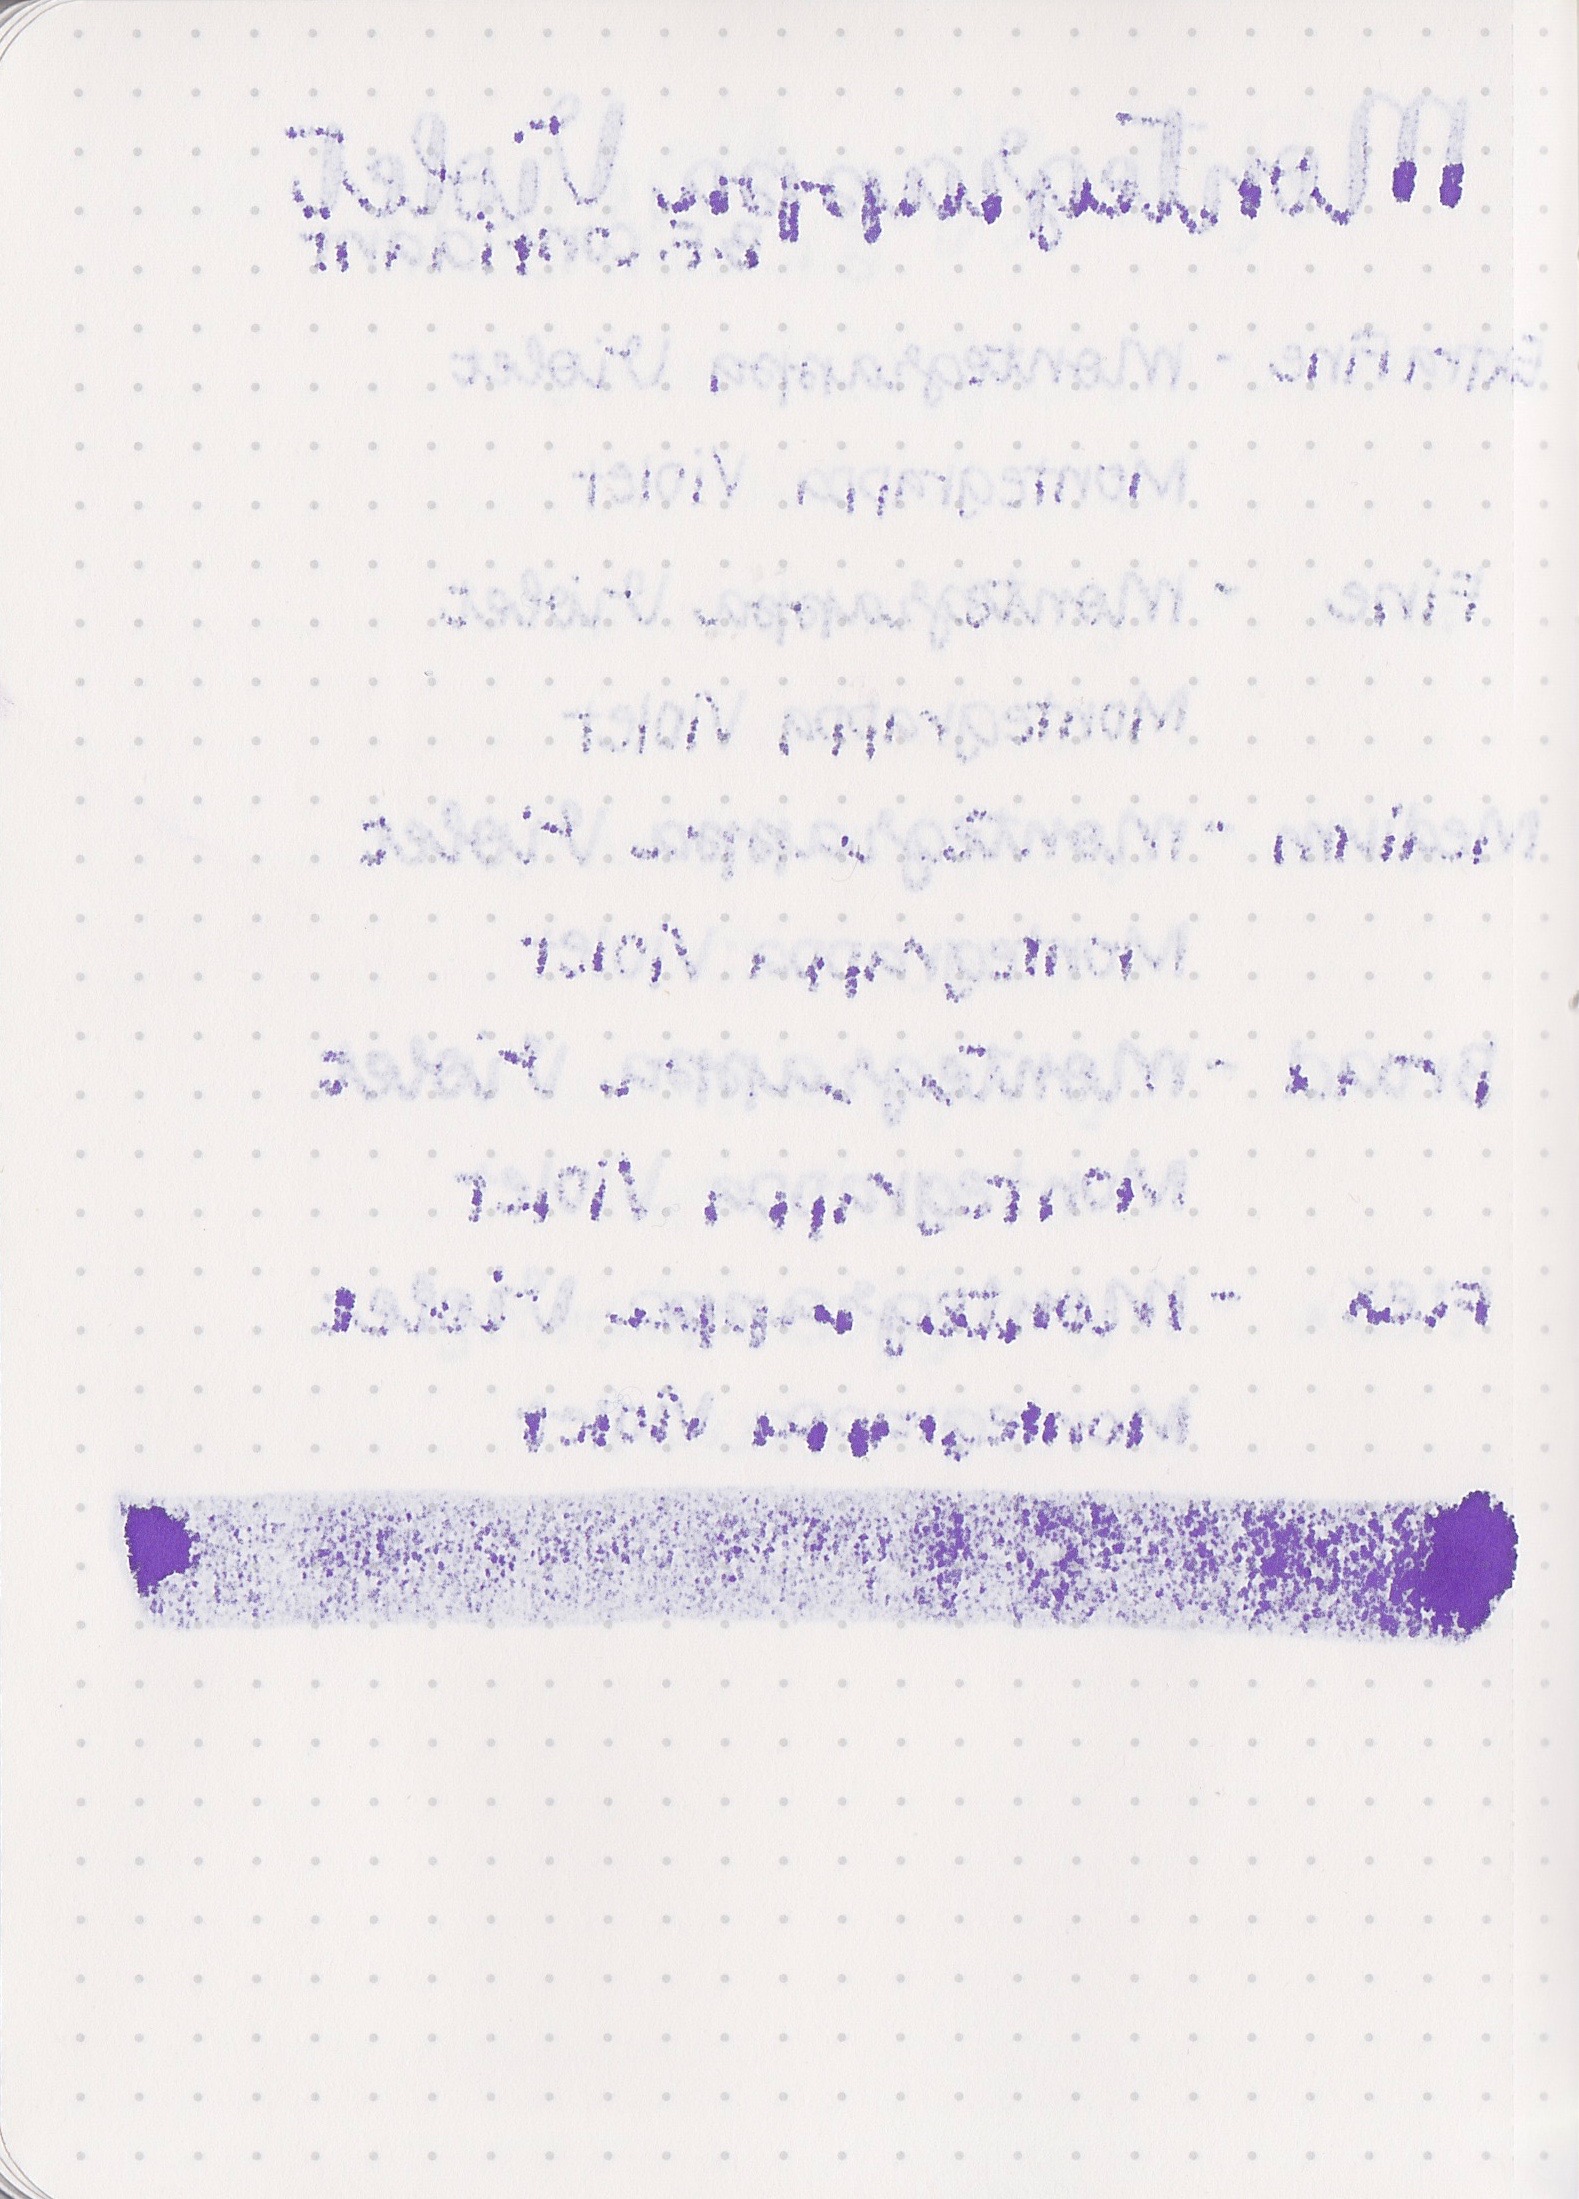 Montegrappa Violet
Extra Fine - Montegrappa Violet
Montegrappa Violet
Fine - Montegrappa Violet
Montegrappa Violet
Medium - Montegrappa Violet
Montegrappa Violet
Broad - Montegrappa Violet
Montegrappa Violet
Flex - Montegrappa Violet
Montegrappa Violet